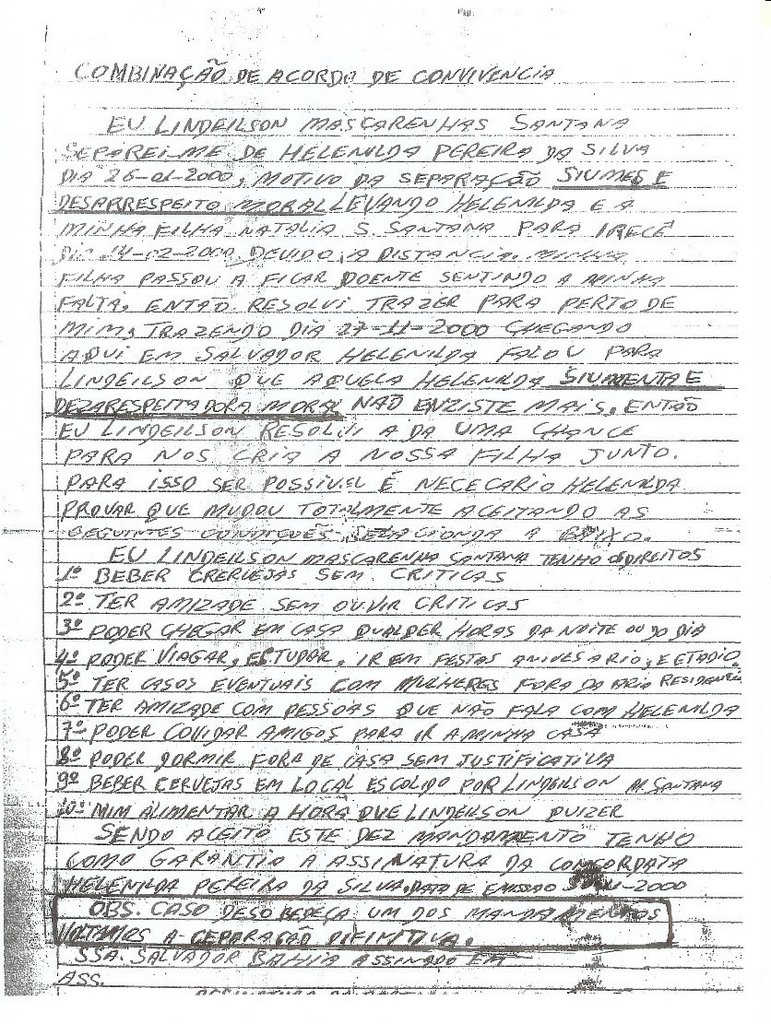 COMBINAÇÃO DE ACORDO DE CONVIVENCIA
EU LINDEILSON MASCARENHAS SANTANA
SEPAREI-ME DE HELENILDA PEREIRA DA SILVA
DIA 26-01-2000, MOTIVO DA SEPARAÇÃO SIUMES E
DESARRESPEITO MORAL LEVANDO HELENILDA E A
MINHA FILHA NATALIA S. SANTANA PARA IRECÊ
DIA 14-02-2000, DEVIDO, A DISTANCIA. MINHA
FILHA PASSOU A FICAR DOENTE SENTINDO A MINHA
FALTA, ENTAO. RESOLVI TRAZER PARA PERTO DE
MIM, TRAZENDO DIA 27-11-2000 CHEGANDO
AQUI EM SALVADOR HELENILDA FALOU PARA
LINDEILSON QUE AQUELA HELENILDA SIUMENTA E
DEZARESPEITADORA MORAL NAO ENZISTE MAIS, ENTÃO
EU LINDEILSON RESOLVI A DA UMA CHANCE
PARA NOS CRIA A NOSSA FILHA JUNTO.
PARA ISSO SER POSSIVEL É NECECARIO HELENILDA
PROVAR QUE MUDOU TOTALMENTE ACEITANDO AS
SEGUINTES CONDIÇOES, A BAIXO.
EU LINDEILSON MASCARENHA SANTANA TENHO DIREITOS
1º BEBER CRERVEJAS SEM. CRITICAS
2º TER AMIZADE SEM OUVIR CRITICAS
3º PODER CHEGAR EM CASA QUALQER HORAS DA NOITE OU DO DIA
4º PODER VIAGAR, ESTUDAR, IR EM FESTAS ANIVESARIO, E ETADIO.
5º TER CASOS EVENTUAIS COM MULHERES FORA DA ARIA RESIDENCIA
6º TER AMIZADE COM PESSOAS QUE NÃO FALA COM HELENILDA
7º PODER COVIDAR AMIGOS PARA IR A MINHA CASA
8º PODER DORMIR FORA DE CASA SEM JUSTIFICATIVA
9º BEBER CERVEJAS EM LOCAL ESCOLIDO POR LINDEILSON M. SANTANA
10º MIM ALIMENTAR A HORA QUE LINDEILSON QUIZER
SENDO ACEITO ESTE DEZ MANDAMENTO TENHO
COMO GARANTIA A ASSINATURA DA CONCORDATA
HELENILDA PEREIRA DA SILVA, DATA DE EMISSAO
OBS. CASO DESOBEDEÇA UM DOS MANDAMENTOS
VOLTAMOS A CEPARAÇÃO DIFINITIVA.
SSA. SALVADOR BAHIA ASSINADO EM
ASS.